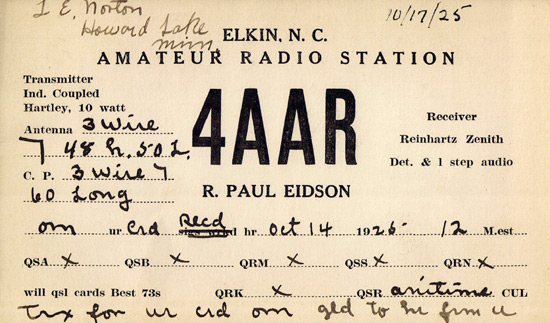 I E. Norton
Howard Lake
Minn.
10/17/25
ELKIN, N. C.
AMATEUR RADIO STATION
Transmitter
Ind. Coupled
Hartley, 10 watt
Antenna 3 Wire
7 48 h. 50 L.
C. P. 3 Wire 7
60 Long
4AAR
Receiver
Reinhartz Zenith
Det. & 1 step audio
R. PAUL EIDSON
om ur Crd Recd hr Oct 14 1925 12 M.est
QSA x QSB x QRM x QSS x QRN x
will qsl cards Best 73s QRK x QSR anitime CUL
Tnx for ur crd om gld to hr frm u